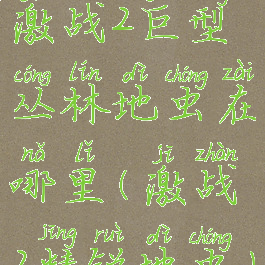 激战2巨型
cóng lín dì chóng zài
丛林地虫在
nǎ lǐ ( jī zhàn
哪里(激战
jīng ruì dì chóng
2精锐地虫)